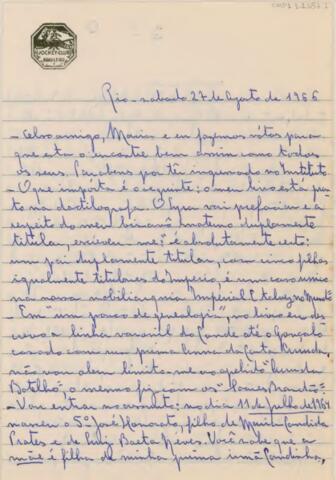 JOCKEY CLUB
BRASILEIRO
Rio - sabado 27 de Agosto de 1966
- Celso amigo, Maria e eu fazemos vótos para
que esta o encontre bem assim como todos
os seus. Parabens por têr ingressado no Instituto
- O que importa é o seguinte: o meu livro está
na dactilografa. O vai prefacia-lo e a
respeito do meu bisavô materno duplamente
titular, escreveu-me: "é absolutamente certo:
um pai duplamente titular, com cinco filhos
igualmente titulares do Imperio, é um caso unico
na nossa nobiliarquia Imperial e talvez no mundo".
- Em "um pouco de genealogia", no livro eu des
crevo a linha varonil do Conde até o Gonçalo
casado com sua prima Anna da Costa
não vou alem limito-me ao apelido
Botelho", o mesmo fiz com os
- Vou entrar no assunto: no dia 11 de Julho de 1961
nasceu o 5º José Honorato, filho de Maria Candida
Prates e de Luiz Baeta Neves. Você sabe que a
mãe é filha de minha prima irmã Candinha,